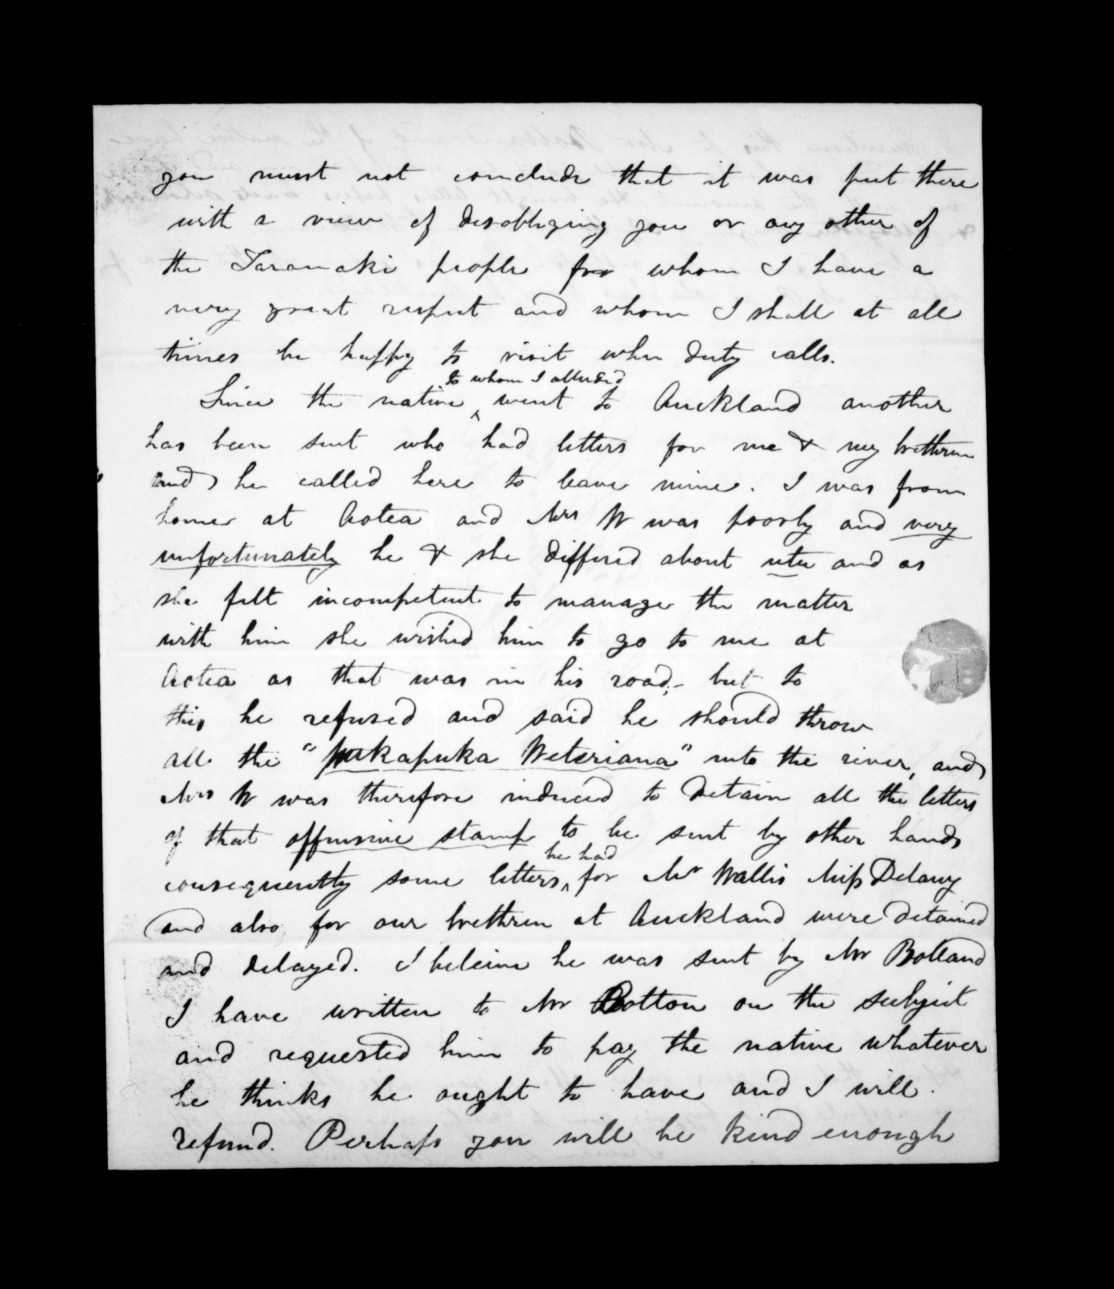 you must not conclude that it was put there
with a view of disobliging you or any other of
the Taranaki people for whom I have a
very great respect and whom I shall at all
times be happy to visit when duty calls.
Since the native ^to whom I alluded went to Auckland another
has been sent who had letters for me & my brethren
and he called here to leave mine. I was from
home at Aotea and Mrs W was poorly and very
unfortunately he & she differed about utu and as
she felt incompetent to manage the matter
with him she wished him to go to me at
Aotea as that was in his road,- but to
this he refused and said he should throw
all the "pukapuka Weteriana" into the river, and
Mrs W was therefore induced to detain all the letters
of that offensive stamp to be sent by other hands
consequently some letters ^he had for Mr Wallis Miss Delany
and also, for our brethren at Auckland were detained
and delayed. I beleive he was sent by Mr Bolland
I have written to Mr Bottom on the subject
and requested him to pay the native whatever
he thinks he ought to have and I will
refund. Perhaps you will be kind enough